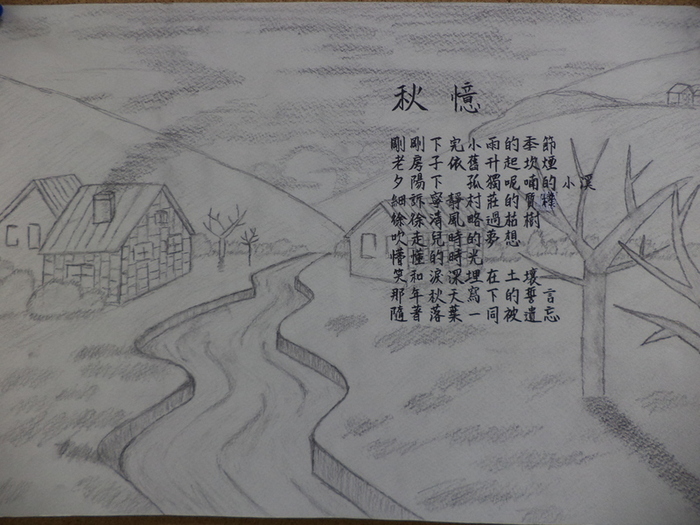 秋憶
剛剛下完小雨的季節
老房子依舊升起炊煙
夕陽下孤獨呢喃的小溪
細訴寧靜村莊的質樸
徐徐清風略過枯樹
吹走兒時的夢想
懵懂的時光
笑和淚深埋在土壤
那年秋天寫下的誓言
隨著落葉一同被遺忘